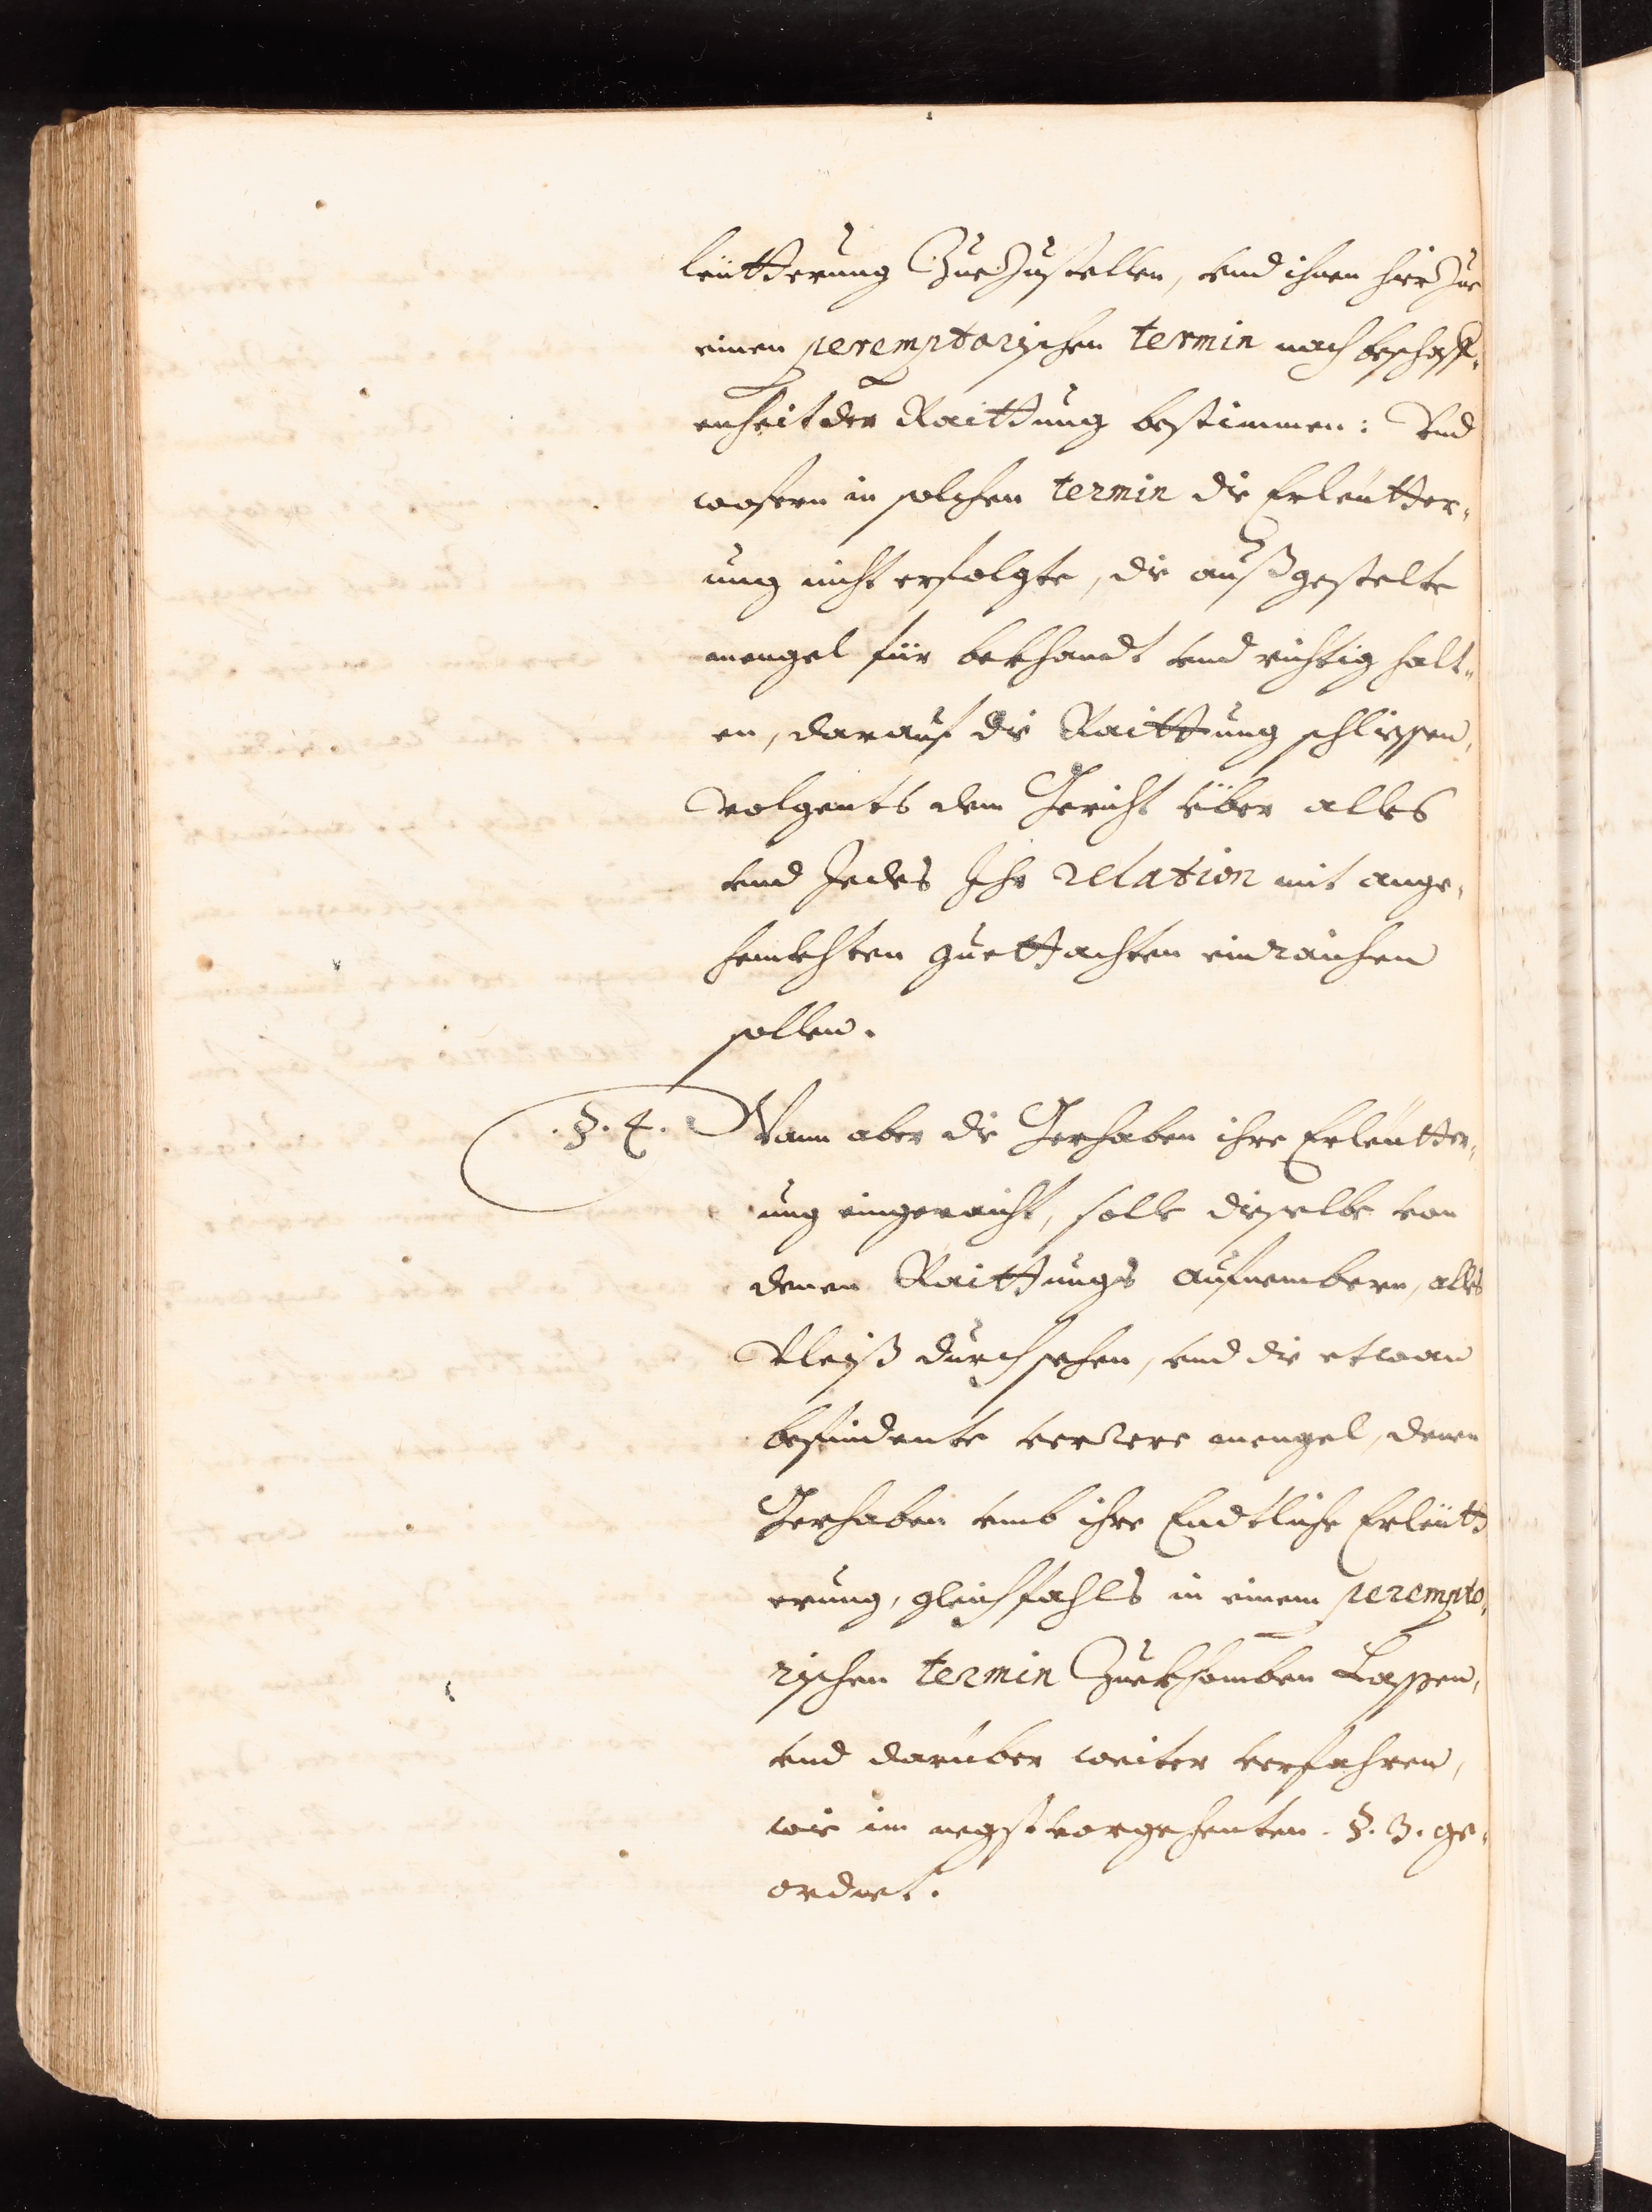 leütterung Zuezustellen, vnd ihnen hierzue
einen peremptorischen termin nach beschaff¬
enheit der Raittung bestimmen: Vnd
wofern in solchen termin die Erleütter¬
ung nicht erfolgte, die außgestelte
mengel für bekhandt vnd richtig halt¬
en, darauf die Raittung schliessen,
Volgents dem Gericht über alles
vnd Jedes Ihr relation mit ange¬
henkhten guettachten einraichen
sollen.
.§. 4. Wann aber die Gerhaben ihre Erleütter¬
ung eingeraicht, solle dieselbe von
denen Raittungs aufnembern, alles
Vleiß durchsehen, vnd die etwan
befindente verrere mengel, denen
Gerhaben vmb ihre Endtliche Erleütt
erung, gleichfahls in einem perempto¬
rischen termin Zuekhomben Lassen,
vnd darüber weiter verfahren,
wie im negst vorgehenten. §. 3. ge¬
ordnet.